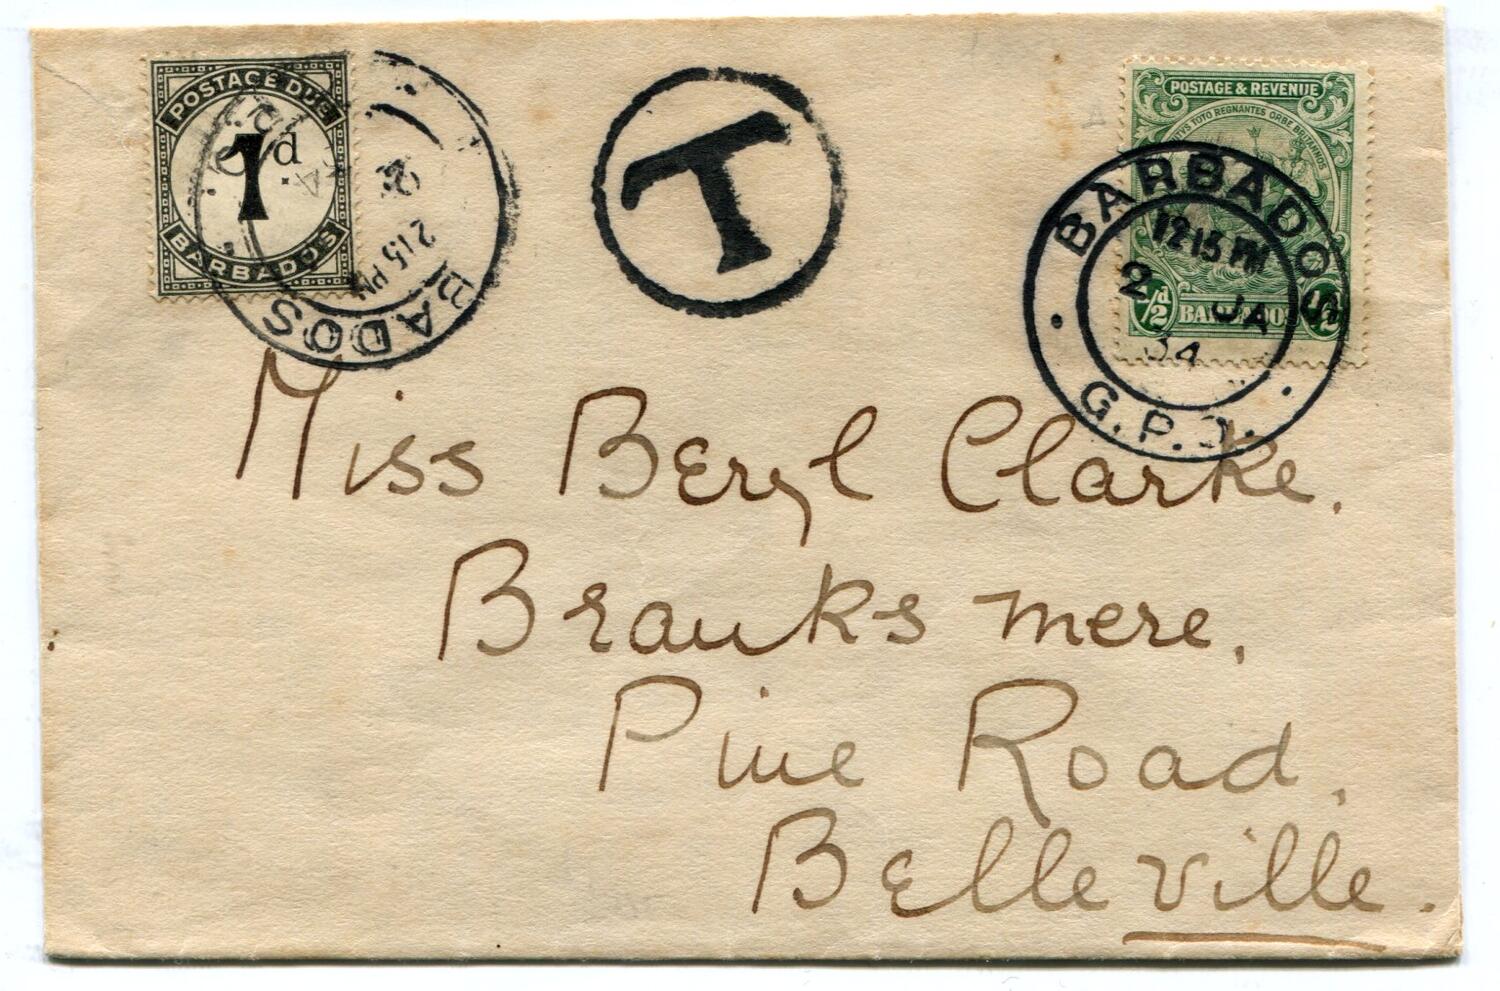 POSTAGE DUE
1d
BARBADOS
BADOS
2
2 15 PM
T
POSTAGE & REVENUE
TOTO REGNANTES ORBE BRITANNOS
1/2d
BARBADOS
BARBADOS
12 15 PM
2 JA
34
G.P.O.
Miss Beryl Clarke.
Branksmere,
Pine Road,
Belleville.